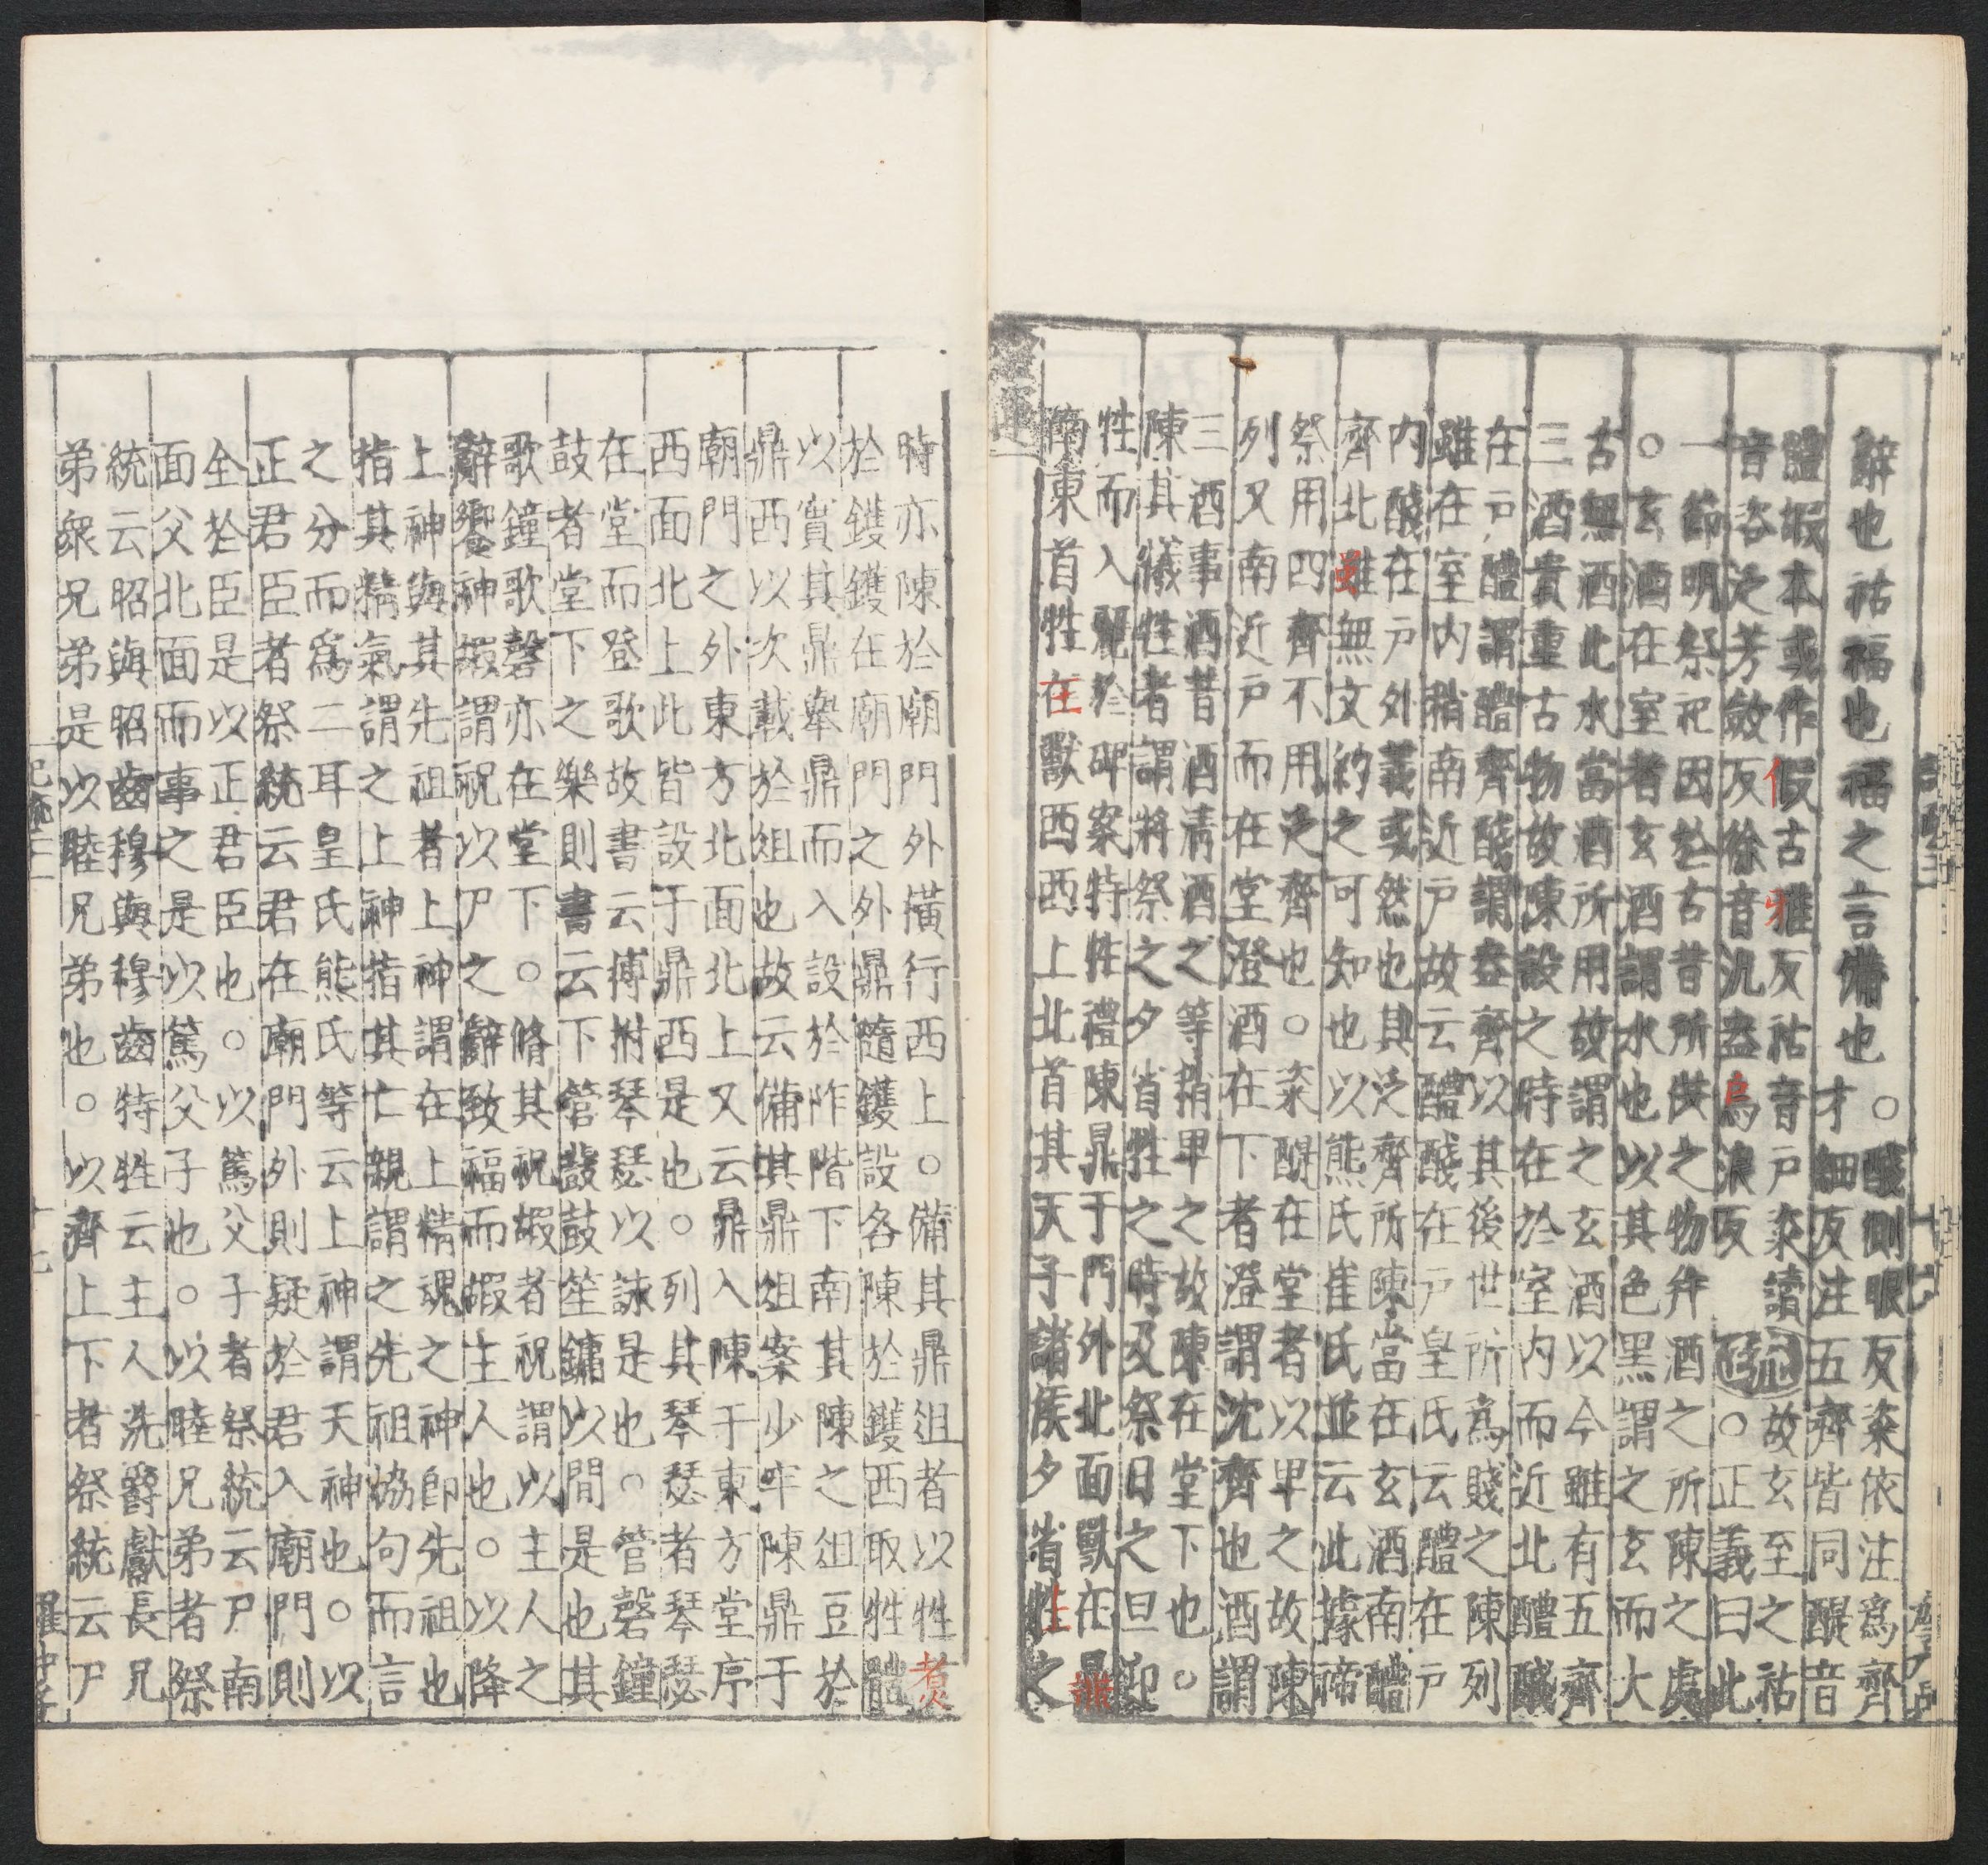 辭也祜福也福之言備也○醆側眼反粢依注爲齊
才細反注五齊皆同醍音
體嘏本或作假古雅反祜音戶粢讀
音咨泛芳斂反徐音汎盎烏浪反
疏故玄至之祜
○正義曰此
一節明祭祀因於古昔所供之物并酒之所陳之處
○玄酒在室者玄酒謂水也以其色黑謂之玄而大
古無酒此水當酒所用故謂之玄酒以今雖有五齊
三酒貴重古物故陳設之時在於室內而近北醴醆
在戶醴謂醴齊醆謂盎齊以其後世所爲賤之陳列
雖在室內稍南近戶故云醴醆在戶皇氏云醴在戶
內醆在戶外義或然也其泛齊所陳當在玄酒南醴
齊北雖無文約之可知也以熊氏崔氏並云此據禘
祭用四齊不用泛齊也○粢醍在堂者以卑之故陳
列又南近戶而在堂澄酒在下者澄謂沈齊也酒謂
三酒事酒昔酒清酒之等稍卑之故陳在堂下也○
陳其犧牲者謂將祭之夕省牲之時及祭日之旦迎
牲而入麗於碑案特牲禮陳鼎于門外北面獸在鼎
南東首牲在獸西西上北首其天子諸侯夕省牲之
時亦陳於廟門外橫行西上○備其鼎俎者以牲煑
於鑊鑊在廟門之外鼎隨鑊設各陳於鑊西取牲體
以實其鼎舉鼎而入設於阼階下南其陳之俎豆於
鼎西以次載於俎也故云備其鼎俎案少牢陳鼎于
廟門之外東方北面北上又云鼎入陳于東方堂序
西面北上此皆設于鼎西是也○列其琴瑟者琴瑟
在堂而登歌故書云搏拊琴瑟以詠是也○管磬鐘
鼓者堂下之樂則書云下管鼗鼓笙鏞以間是也其
歌鐘歌磬亦在堂下○脩其祝嘏者祝謂以主人之
辭饗神嘏謂祝以尸之辭致福而嘏主人也○以降
上神與其先祖者上神謂在上精魂之神卽先祖也
指其精氣謂之上神指其亡親謂之先祖協句而言
之分而爲二耳皇氏熊氏等云上神謂天神也○以
正君臣者祭統云君在廟門外則疑於君入廟門則
全於臣是以正君臣也○以篤父子者祭統云尸南
面父北面而事之是以篤父子也○以睦兄弟者祭
統云昭與昭齒穆與穆齒特牲云主人洗爵獻長兄
弟衆兄弟是以睦兄弟也○以齊上下者祭統云尸